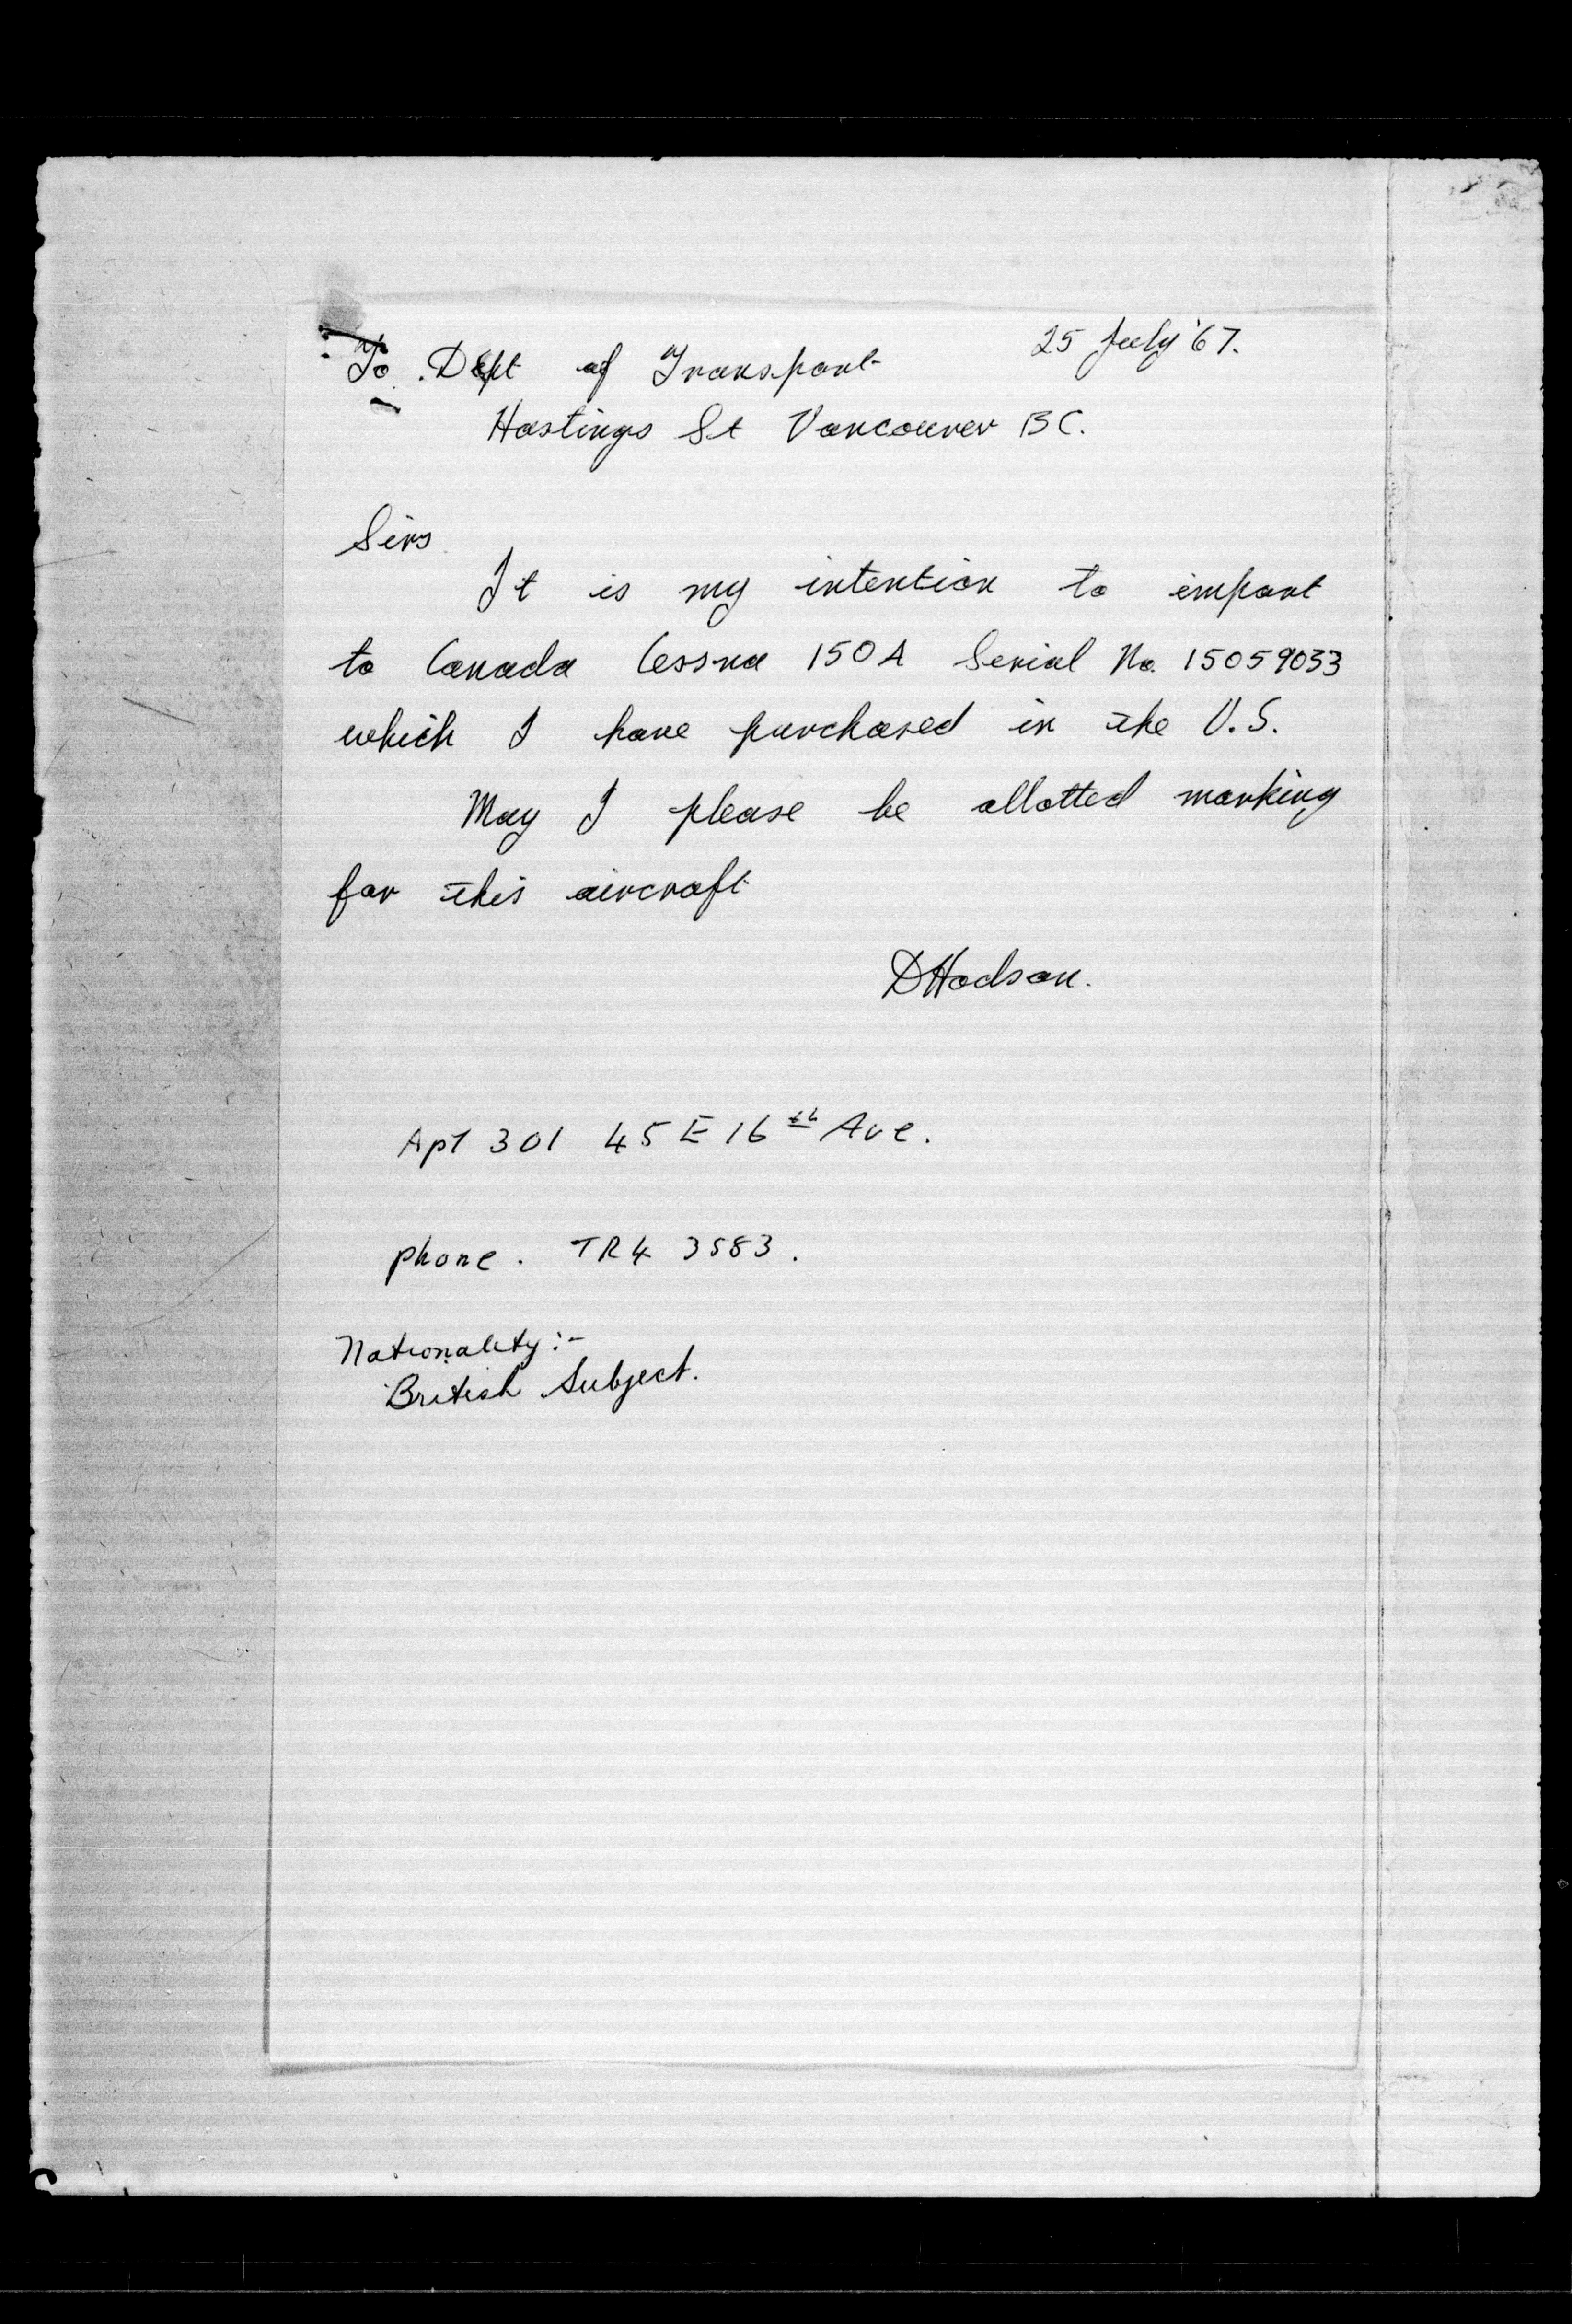 25 July '67.
To. Dept of Transport
Hastings St Vancouver BC.
Sirs
It is my intention to import
to Canada Cessna 150A Serial No. 15059033
which I have purchased in the U.S.
May I please be allotted marking
for this aircraft
DHodson.
Apt 301 45 E 16th Ave.
phone. TR4 3583.
Nationality:-
British Subject.